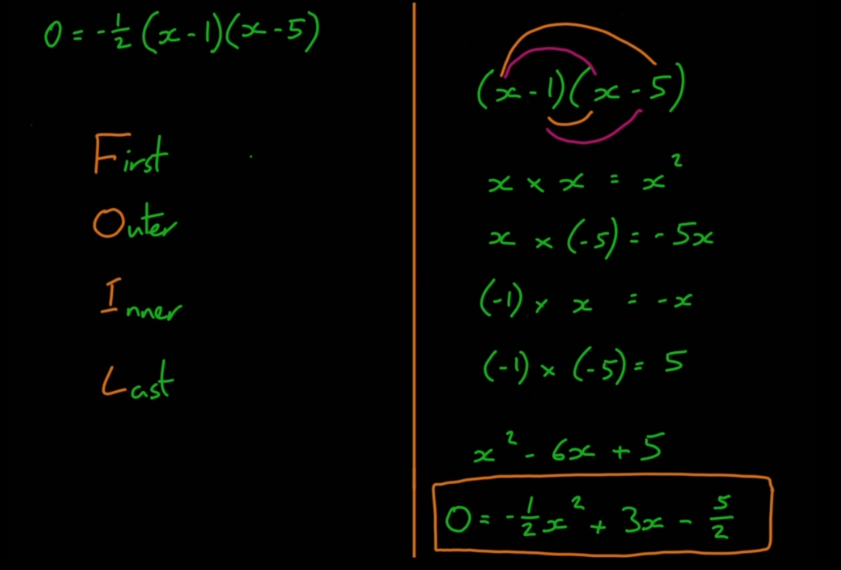 0 = -½ (x - 1)(x - 5)
First
Outer
Inner
Last
(x - 1)(x - 5)
x × x = x²
x × (-5) = -5x
(-1) × x = -x
(-1) × (-5) = 5
x² - 6x + 5
0 = -½x² + 3x - 5/2